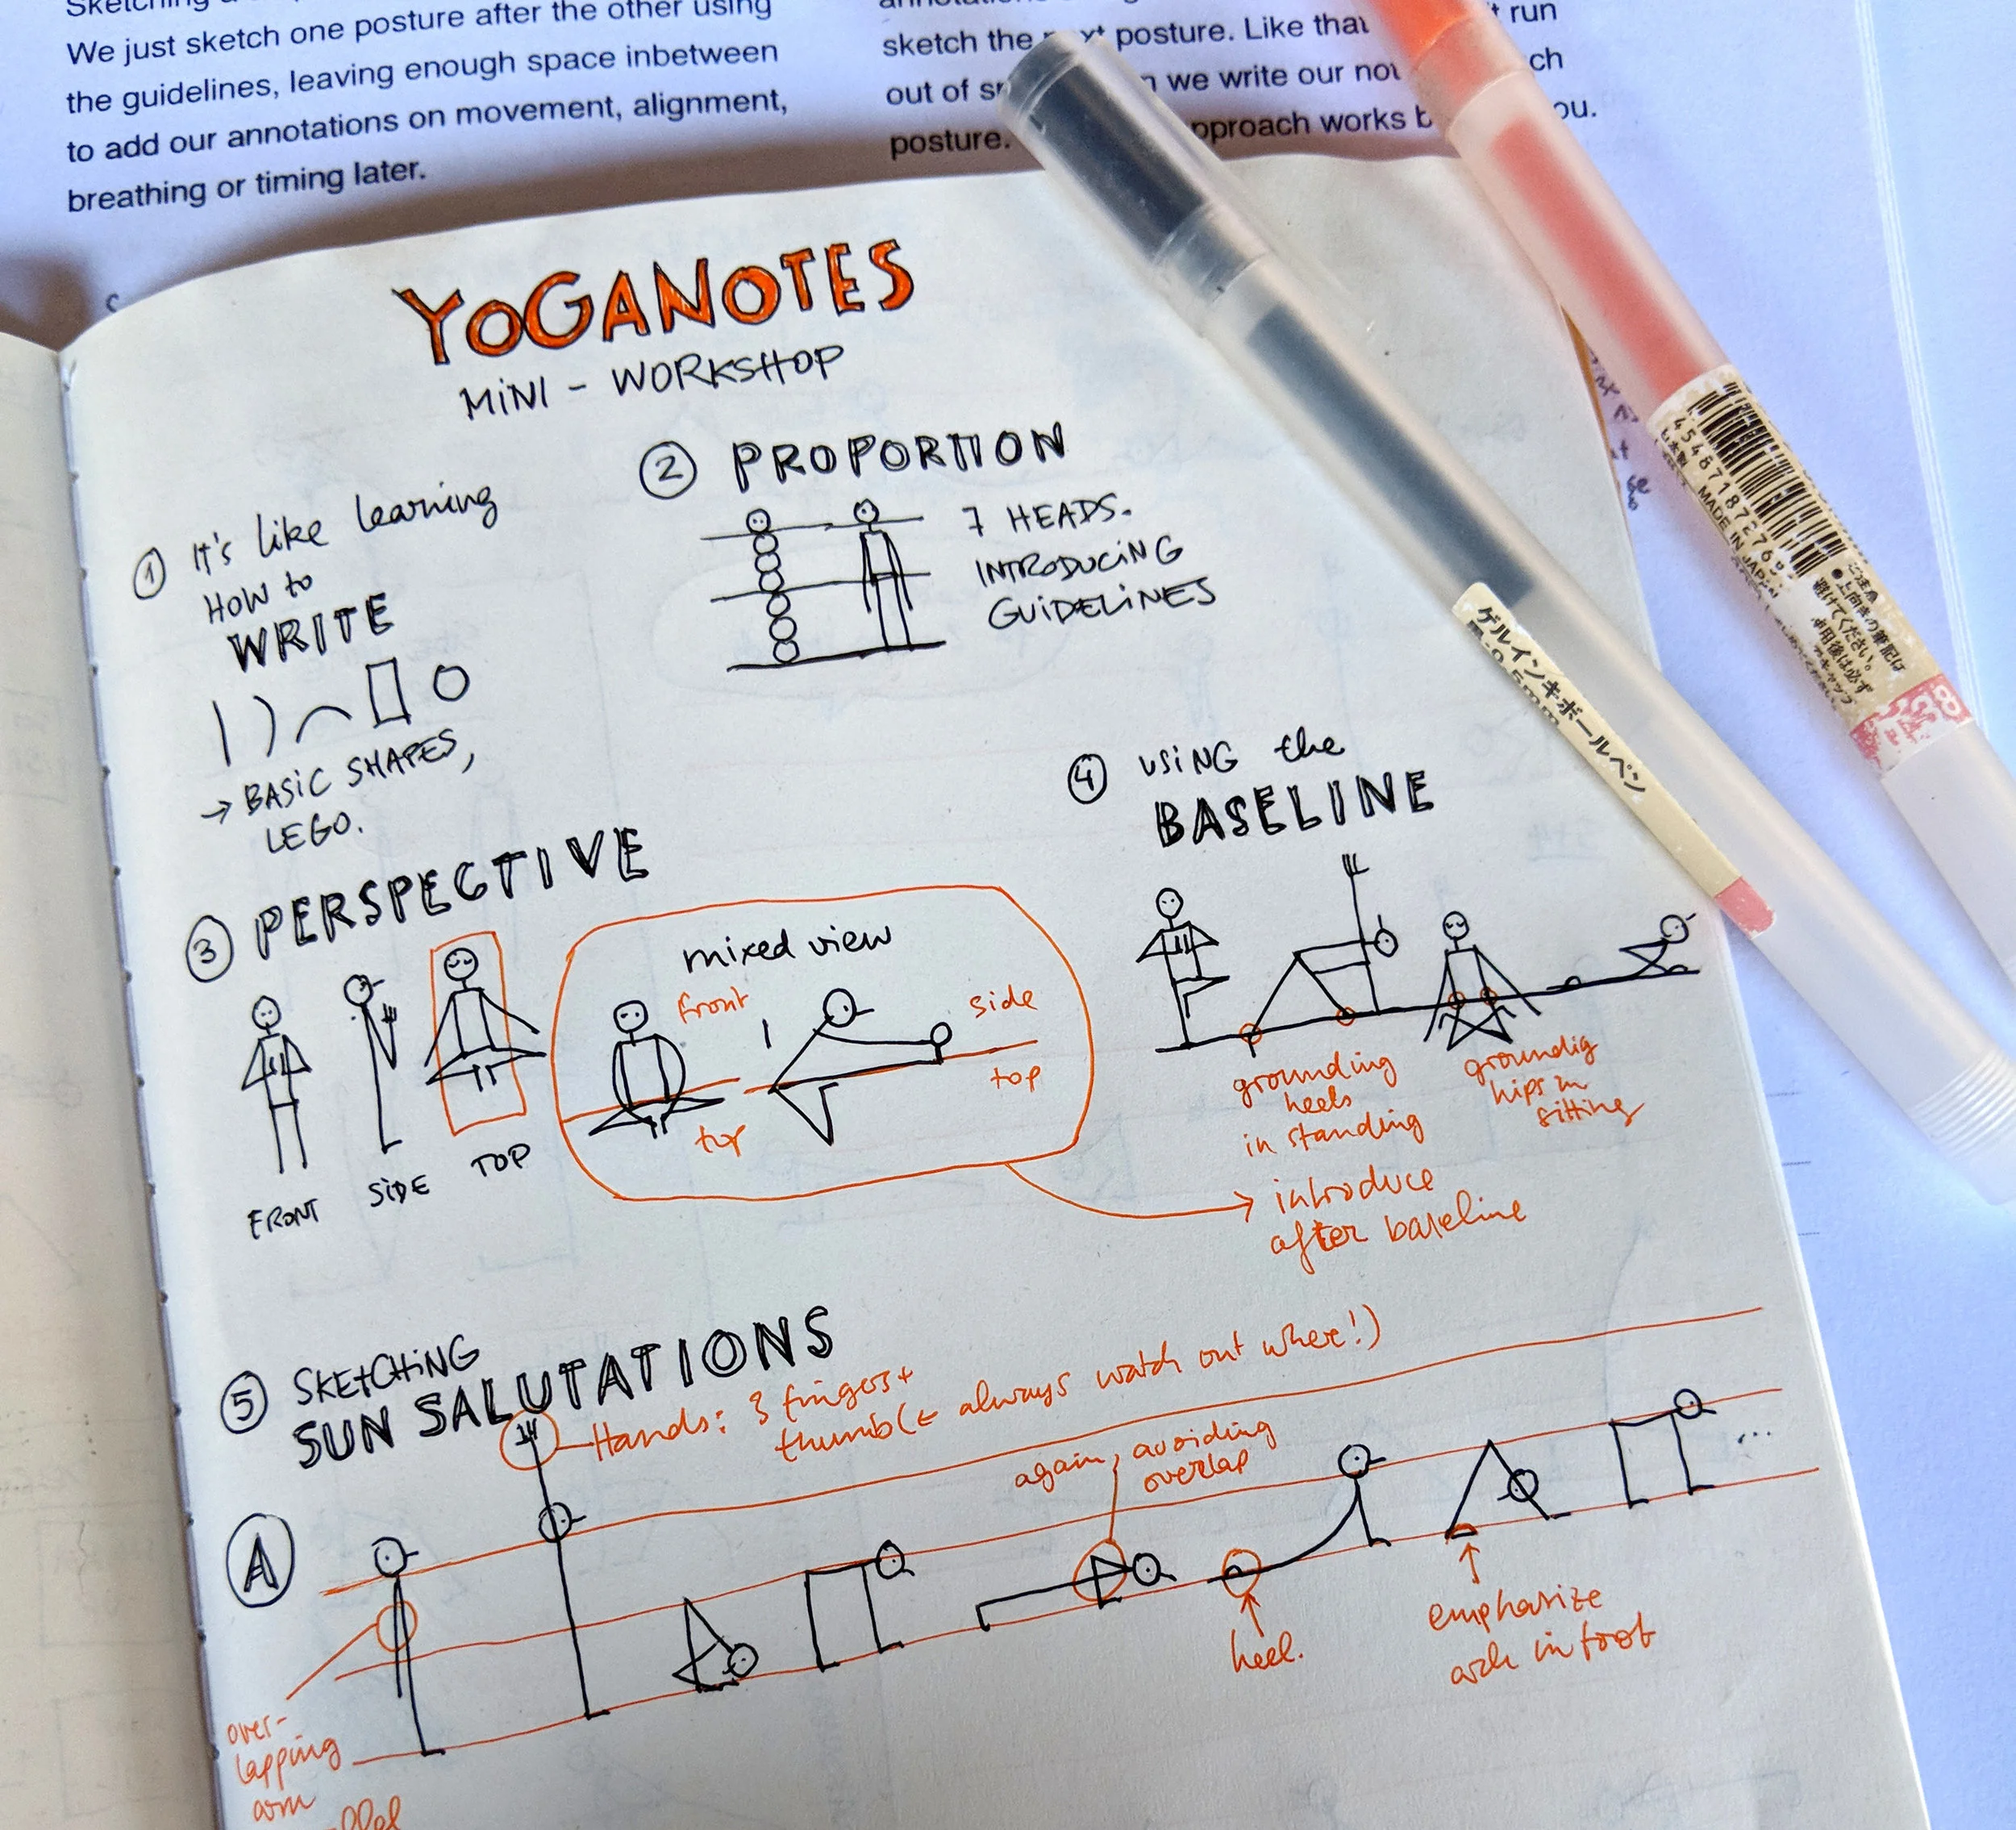 Sketching
We just sketch one posture after the other using
the guidelines, leaving enough space inbetween
to add our annotations on movement, alignment,
breathing or timing later.
sketch the posture. Like that
run
out of we write our
posture. works
YOGANOTES
MINI - WORKSHOP
1 It's like learning
HOW to
WRITE
→ BASIC SHAPES,
LEGO.
2 PROPORTION
7 HEADS.
INTRODUCING
GUIDELINES
3 PERSPECTIVE
FRONT
SIDE
TOP
mixed view
front
top
side
top
4 USING the
BASELINE
grounding
heels
in standing
groundig
hips in
sitting
→ introduce
after baseline
5 SKETCHING
SUN SALUTATIONS
Hands: 3 fingers +
thumb (← always watch out where!)
again, avoiding
overlap
A
...
over-
lapping
arm
heel.
emphasize
arch in foot
MADE IN JAPAN
ゲルインキボールペン